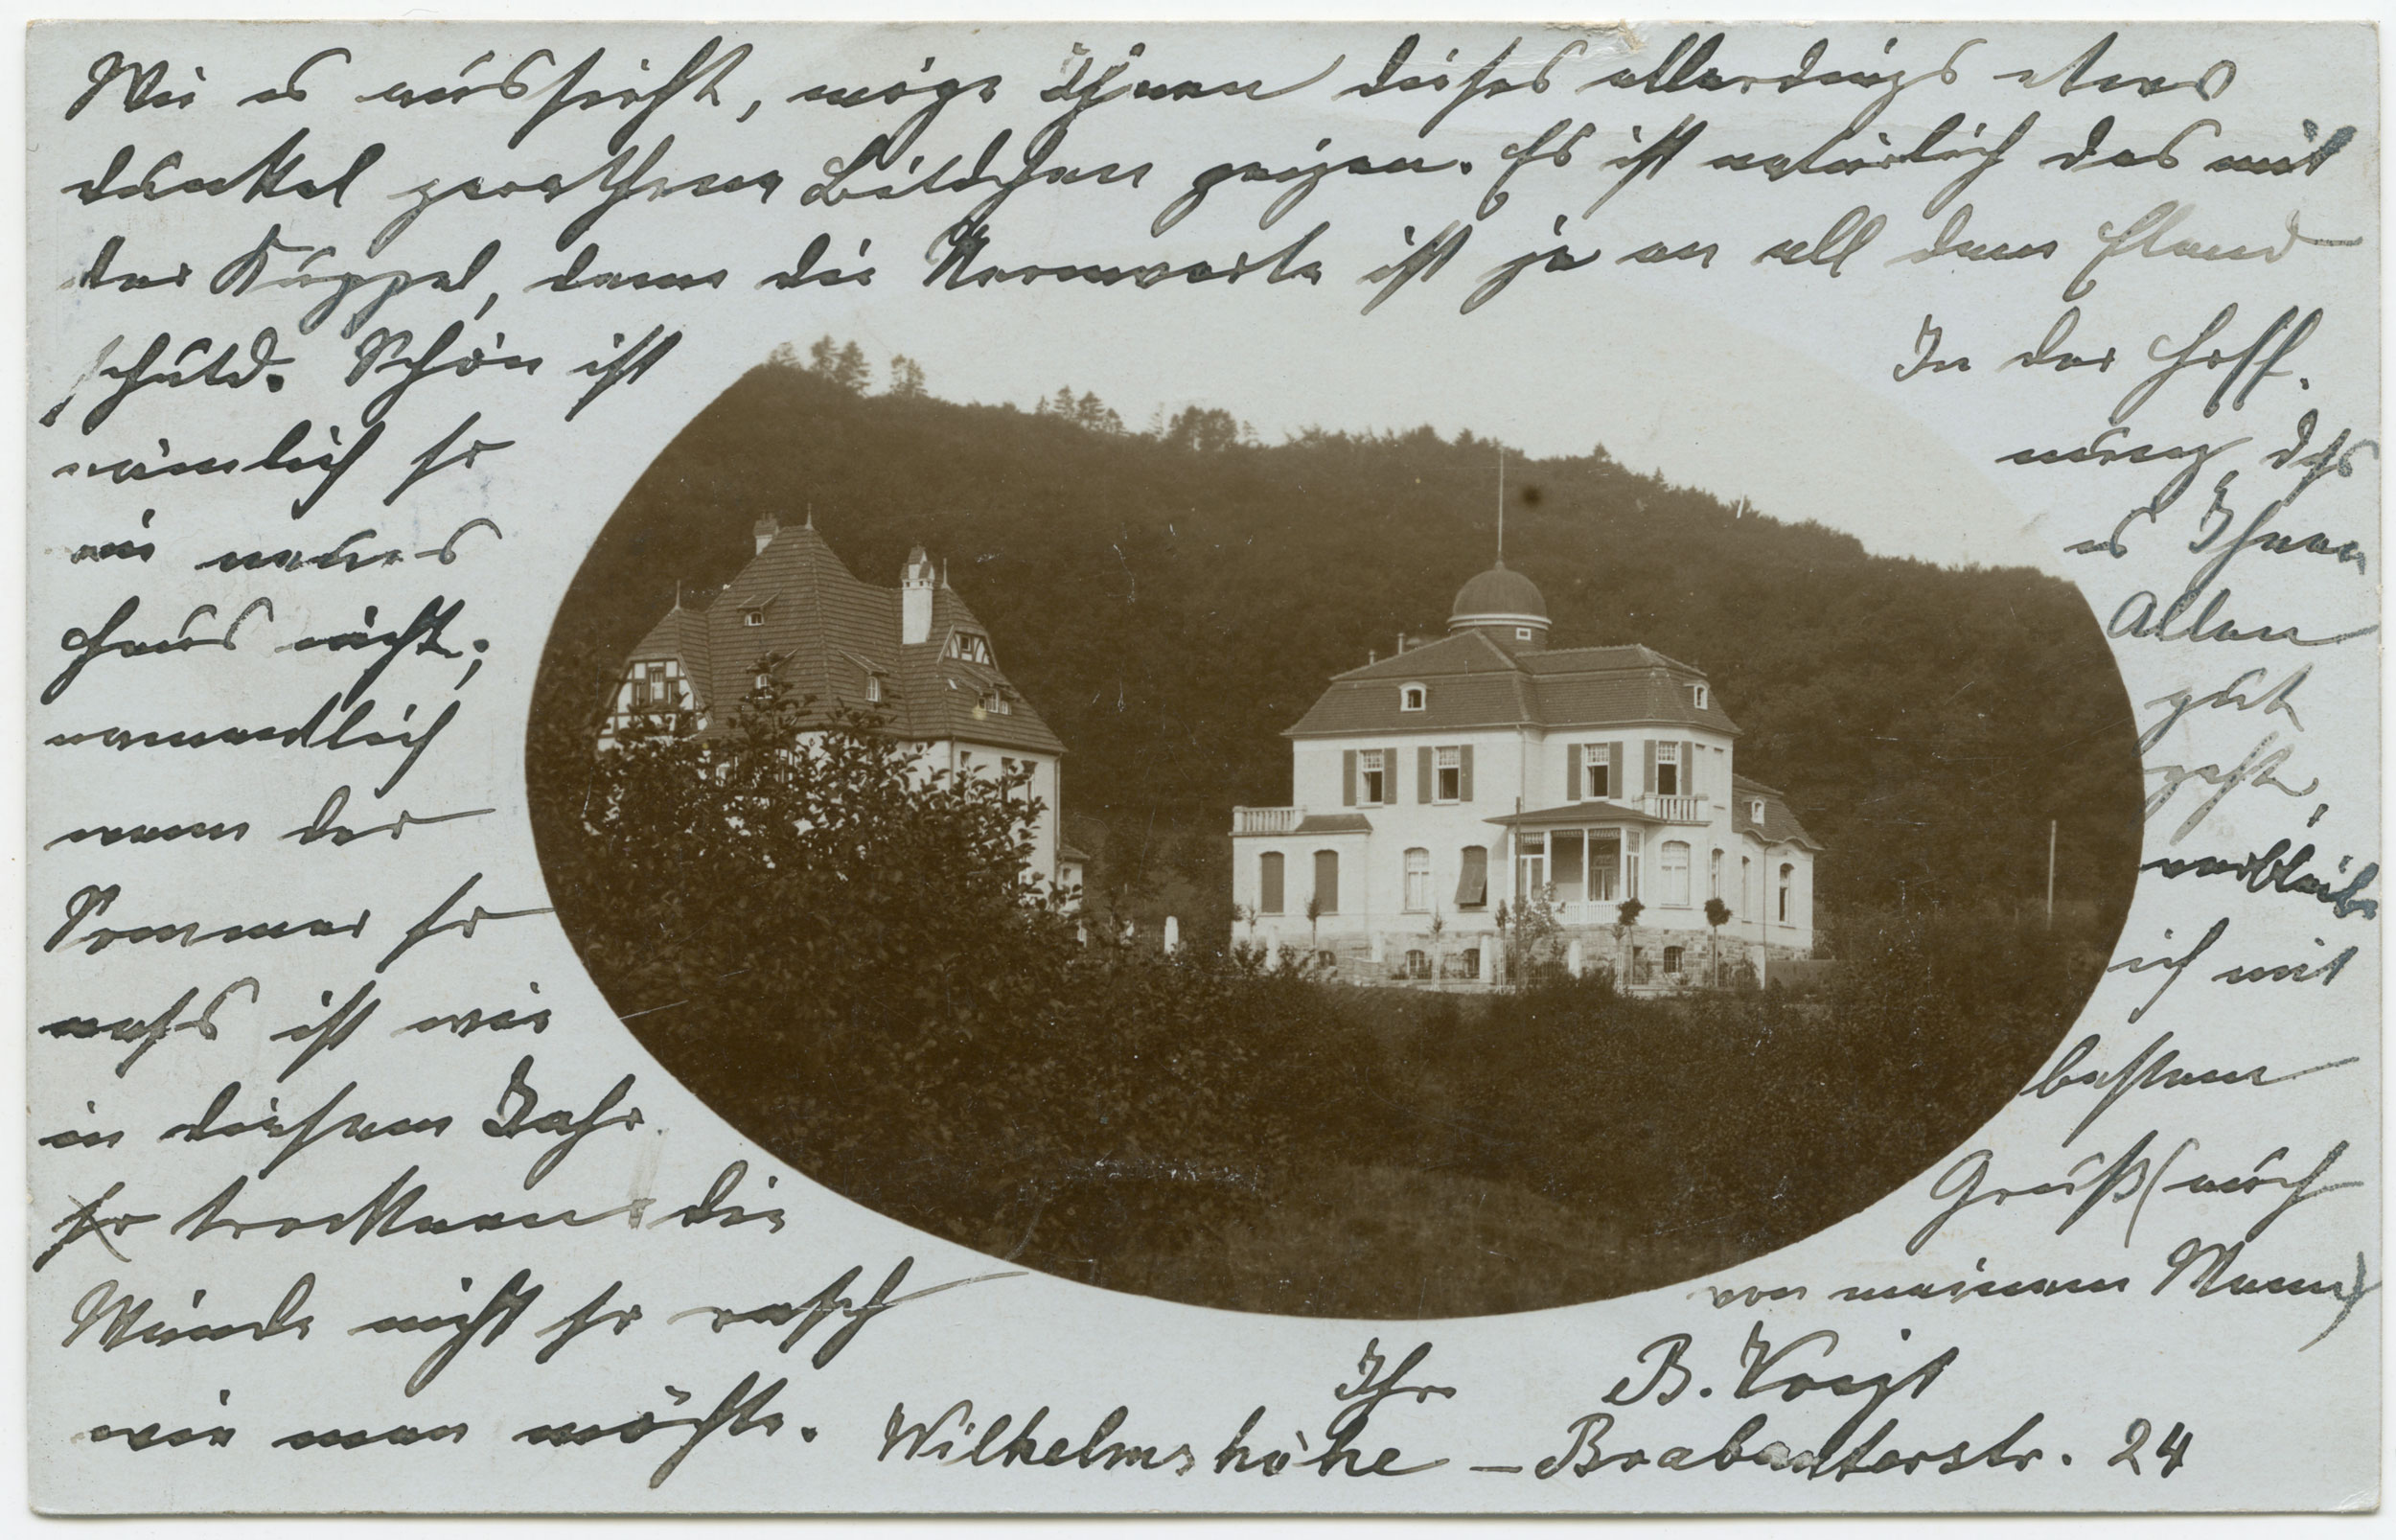 Wie es aussieht, möge Ihnen dieses allerdings etwas
dunkel gerathene Bildchen zeigen. Es ist natürlich das mit
der Kuppel, denn die Sternwarte ist ja an all dem Elend
schuld. Schön ist
nämlich so
ein neues
Haus nicht;
namentlich
wenn der
Sommer so
naß ist wie
in diesem Jahr
trocknen die
Wände nicht so rasch
wie man möchte.
In der Hoff-
nung, daß
es Ihnen
Allen
gut
geht,
verbleibe
ich mit
bestem
Gruß (auch
von meinem Mann)
Ihre B. Voigt
Wilhelmshöhe – Brabanterstr. 24